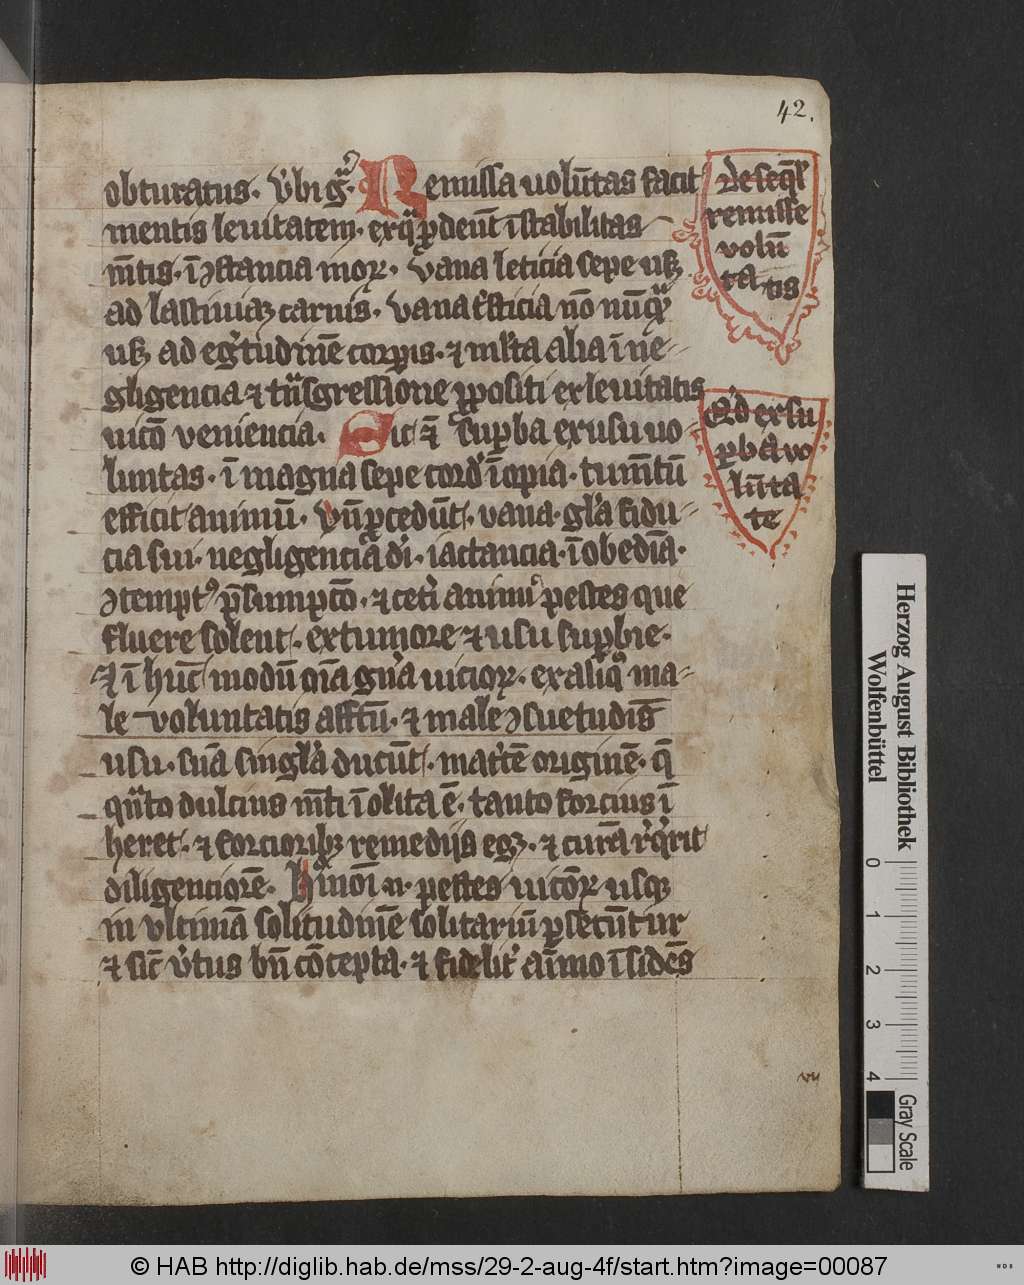 42.
obturatus. Vbi gͣ. Remissa volūtas facit
mentis leuitatem. ex qͣ ꝓdeūt īstabilitas
m̄tis. īꝯstancia moꝝ. vana leticia sepe usqꝫ
ad lasciuiaꝫ carnis. vana t͛sticia nō nūqͣ
usqꝫ ad eg͛tudinē corꝑis. ⁊ ml̓ta alia ī ne-
gligencia ⁊ tͣnsgressione ꝓpositi ex leuitatis
uicō veniencia. Sic ⁊ suꝑba ex usu uo-
luntas. ī magna sepe cord̓ īopia. tum̄tū
efficit animū. vn̄ ꝓcedūt. vana. gl̓a fidu-
cia sui. negligencia di. iactancia. īobediā.
ꝯtempt᷒ p̄sumpcō. ⁊ cet͛i animi pestes que
fluere solent. ex tumore ⁊ usu suꝑbie.
⁊ ī hūc modū oīa gn̄a uicioꝝ. ex aliqͦ ma-
le voluntatis affc̄tu. ⁊ male ꝯsuetudīs
usu. suā singl̓a ducūt. mat͛tē originē. q̄
qͣnto dulcius m̄ti īolita ē. tanto forcius ī
heret. ⁊ forciorib᷒ remedijs egꝫ. ⁊ curā rͤqͥrit
diligenciorē. Hͥ ⁊ nōī n. pestes uicōꝝ usqꝫ
in vltimā solitudinē solitariū ꝑsecūtur
⁊ sic̄ v͛tus bn̄ cōcepta. ⁊ fidelit͛ aīmo īsidēs
de seqͣl᷒
remisse
volū
ta-tis
Qͩ ex su
ꝑba vo
lūta
te
Herzog August Bibliothek
Wolfenbüttel
0 1 2 3 4
Gray Scale
© HAB http://diglib.hab.de/mss/29-2-aug-4f/start.htm?image=00087